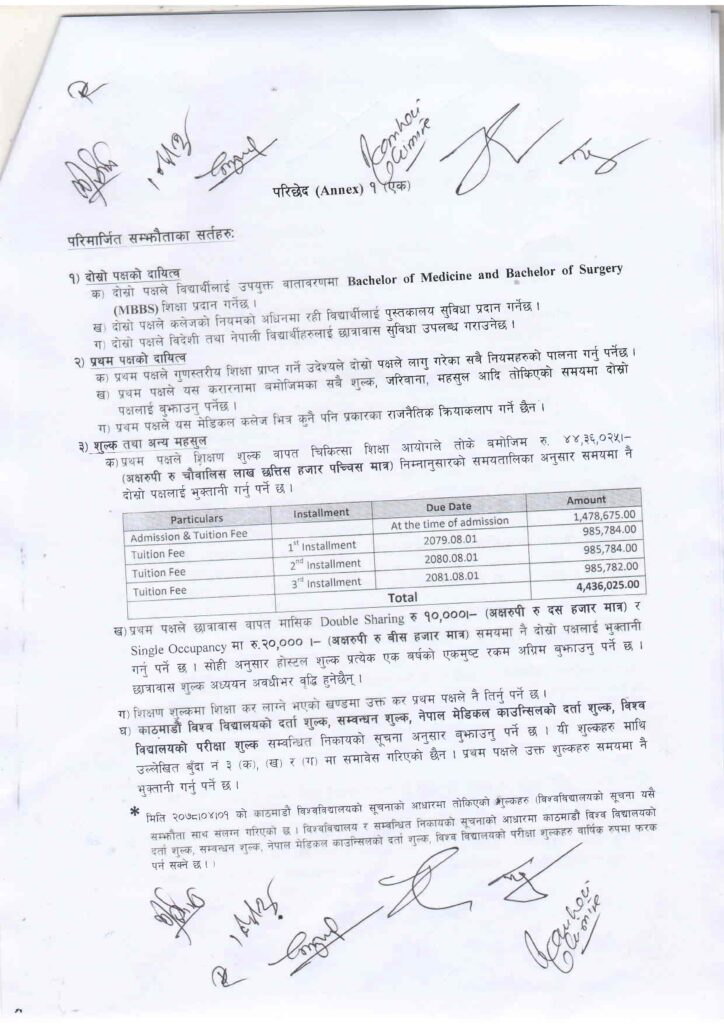 परिछेद (Annex) १ (एक)
परिमार्जित सम्झौताका सर्तहरु:
१) दोस्रो पक्षको दायित्व
क) दोस्रो पक्षले विद्यार्थीलाई उपयुक्त वातावरणमा Bachelor of Medicine and Bachelor of Surgery
(MBBS) शिक्षा प्रदान गर्नेछ ।
ख) दोस्रो पक्षले कलेजको नियमको अधिनमा रही विद्यार्थीलाई पुस्तकालय सुविधा प्रदान गर्नेछ ।
ग) दोस्रो पक्षले विदेशी तथा नेपाली विद्यार्थीहरुलाई छात्रावास सुविधा उपलब्ध गराउनेछ ।
२) प्रथम पक्षको दायित्व
क) प्रथम पक्षले गुणस्तरीय शिक्षा प्राप्त गर्ने उदेश्यले दोस्रो पक्षले लागु गरेका सबै नियमहरुको पालना गर्नु पर्नेछ ।
ख) प्रथम पक्षले यस करारनामा बमोजिमका सबै शुल्क, जरिवाना, महसुल आदि तोकिएको समयमा दोस्रो
पक्षलाई बुझाउनु पर्नेछ ।
ग) प्रथम पक्षले यस मेडिकल कलेज भित्र कुनै पनि प्रकारका राजनैतिक क्रियाकलाप गर्ने छैन ।
३) शुल्क तथा अन्य महसुल
क) प्रथम पक्षले शिक्षण शुल्क वापत चिकित्सा शिक्षा आयोगले तोके बमोजिम रु. ४४,३६,०२५।–
(अक्षरुपी रु चौवालिस लाख छत्तिस हजार पच्चिस मात्र) निम्नानुसारको समयतालिका अनुसार समयमा नै
दोस्रो पक्षलाई भुक्तानी गर्नु पर्ने छ ।
Particulars Installment Due Date Amount
Admission & Tuition Fee At the time of admission 1,478,675.00
Tuition Fee 1st Installment 2079.08.01 985,784.00
Tuition Fee 2nd Installment 2080.08.01 985,784.00
Tuition Fee 3rd Installment 2081.08.01 985,782.00
Total 4,436,025.00
ख) प्रथम पक्षले छात्रावास वापत मासिक Double Sharing रु १०,०००।– (अक्षरुपी रु दस हजार मात्र) र
Single Occupancy मा रु.२०,००० ।– (अक्षरुपी रु बीस हजार मात्र) समयमा नै दोस्रो पक्षलाई भुक्तानी
गर्नु पर्ने छ । सोही अनुसार होस्टल शुल्क प्रत्येक एक वर्षको एकमुष्ट रकम अग्रिम बुझाउनु पर्ने छ ।
छात्रावास शुल्क अध्ययन अवधीभर वृद्धि हुनेछैन् ।
ग) शिक्षण शुल्कमा शिक्षा कर लाग्ने भएको खण्डमा उक्त कर प्रथम पक्षले नै तिर्नु पर्ने छ ।
घ) काठमाडौं विश्व विद्यालयको दर्ता शुल्क, सम्वन्धन शुल्क, नेपाल मेडिकल काउन्सिलको दर्ता शुल्क, विश्व
विद्यालयको परीक्षा शुल्क सम्वन्धित निकायको सूचना अनुसार बुझाउनु पर्ने छ । यी शुल्कहरु माथि
उल्लेखित बुँदा नं ३ (क), (ख) र (ग) मा समावेस गरिएको छैन । प्रथम पक्षले उक्त शुल्कहरु समयमा नै
भुक्तानी गर्नु पर्ने छ ।
* मिति २०७८।०४।०१ को काठमाडौं विश्वविद्यालयको सूचनाको आधारमा तोकिएको शुल्कहरु (विश्वविद्यालयको सूचना यसै
सम्झौता साथ संलग्न गरिएको छ । विश्वविद्यालय र सम्वन्धित निकायको सूचनाको आधारमा काठमाडौं विश्व विद्यालयको
दर्ता शुल्क, सम्वन्धन शुल्क, नेपाल मेडिकल काउन्सिलको दर्ता शुल्क, विश्व विद्यालयको परीक्षा शुल्कहरु वार्षिक रुपमा फरक
पर्न सक्ने छ ।)